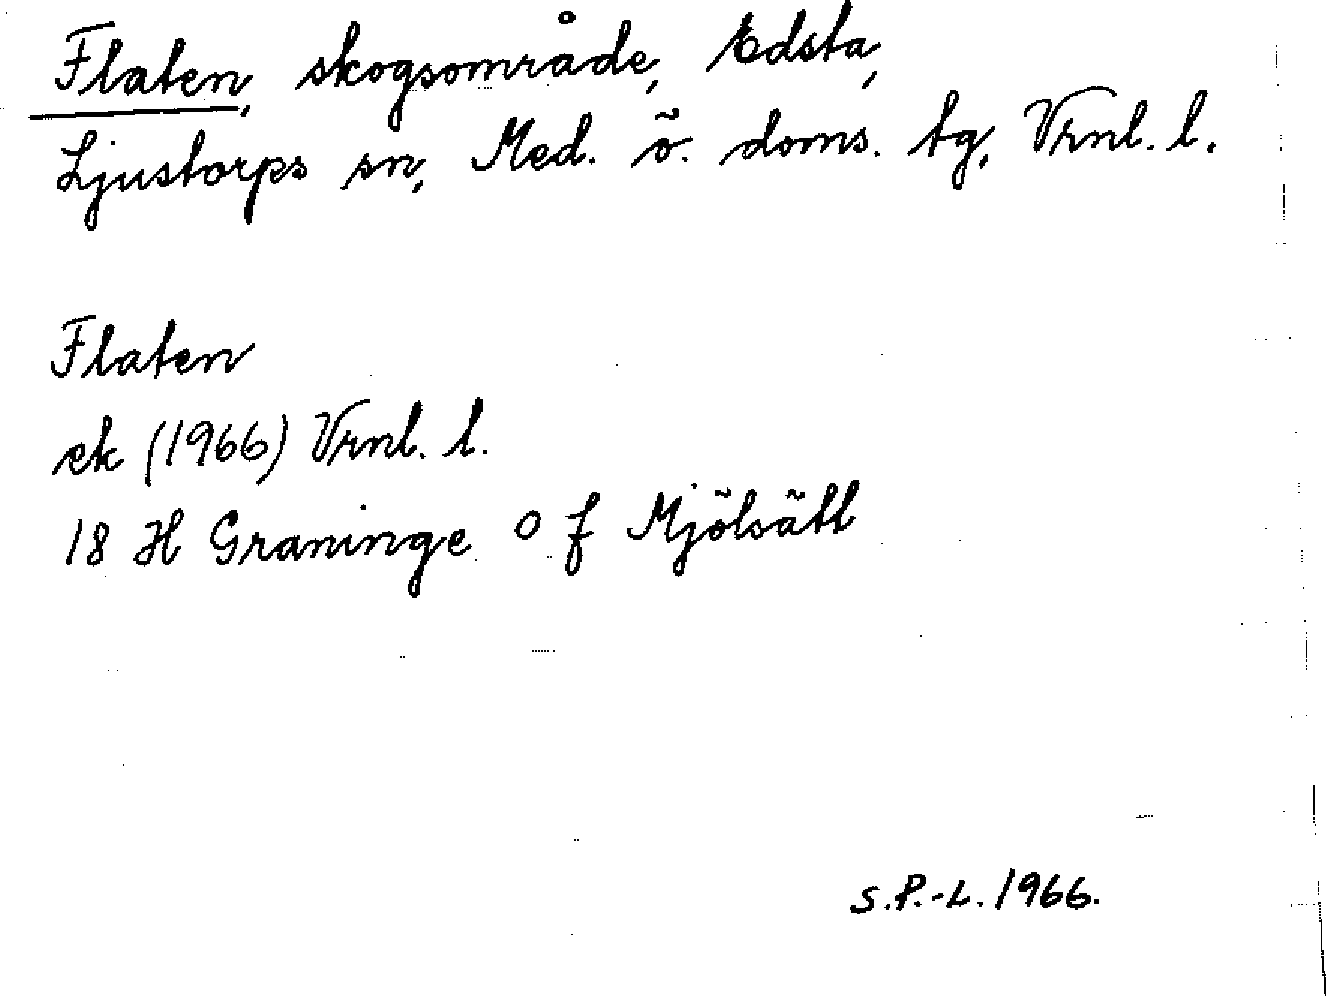 Flaten, skogsområde, Edsta,
Ljustorps sn, Med. ö. doms. tg, Vrnl. l.
Flaten
ek (1966) Vrnl. l.
18 H Graninge O f Mjölsätt
S.P.-L. 1966.